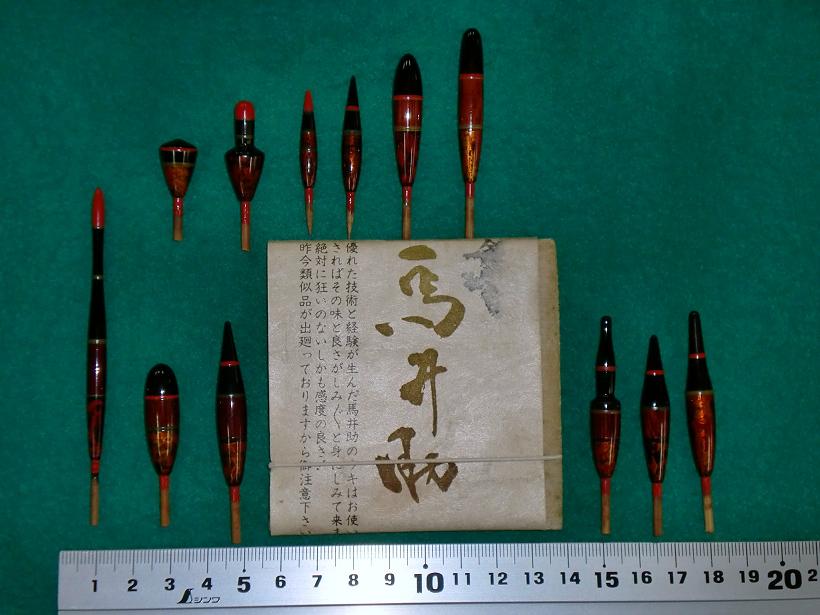 馬井助
優れた技術と経験が生んだ馬井助のウキはお使い
さればその味と良さがしみ〴〵と身にしみて来ま
絶対に狂いのないしかも感度の良さ
昨今類似品が出廻っておりますから御注意下さい
1 2 3 4 5 6 7 8 9 10 11 12 13 14 15 16 17 18 19 20 2
シンワ